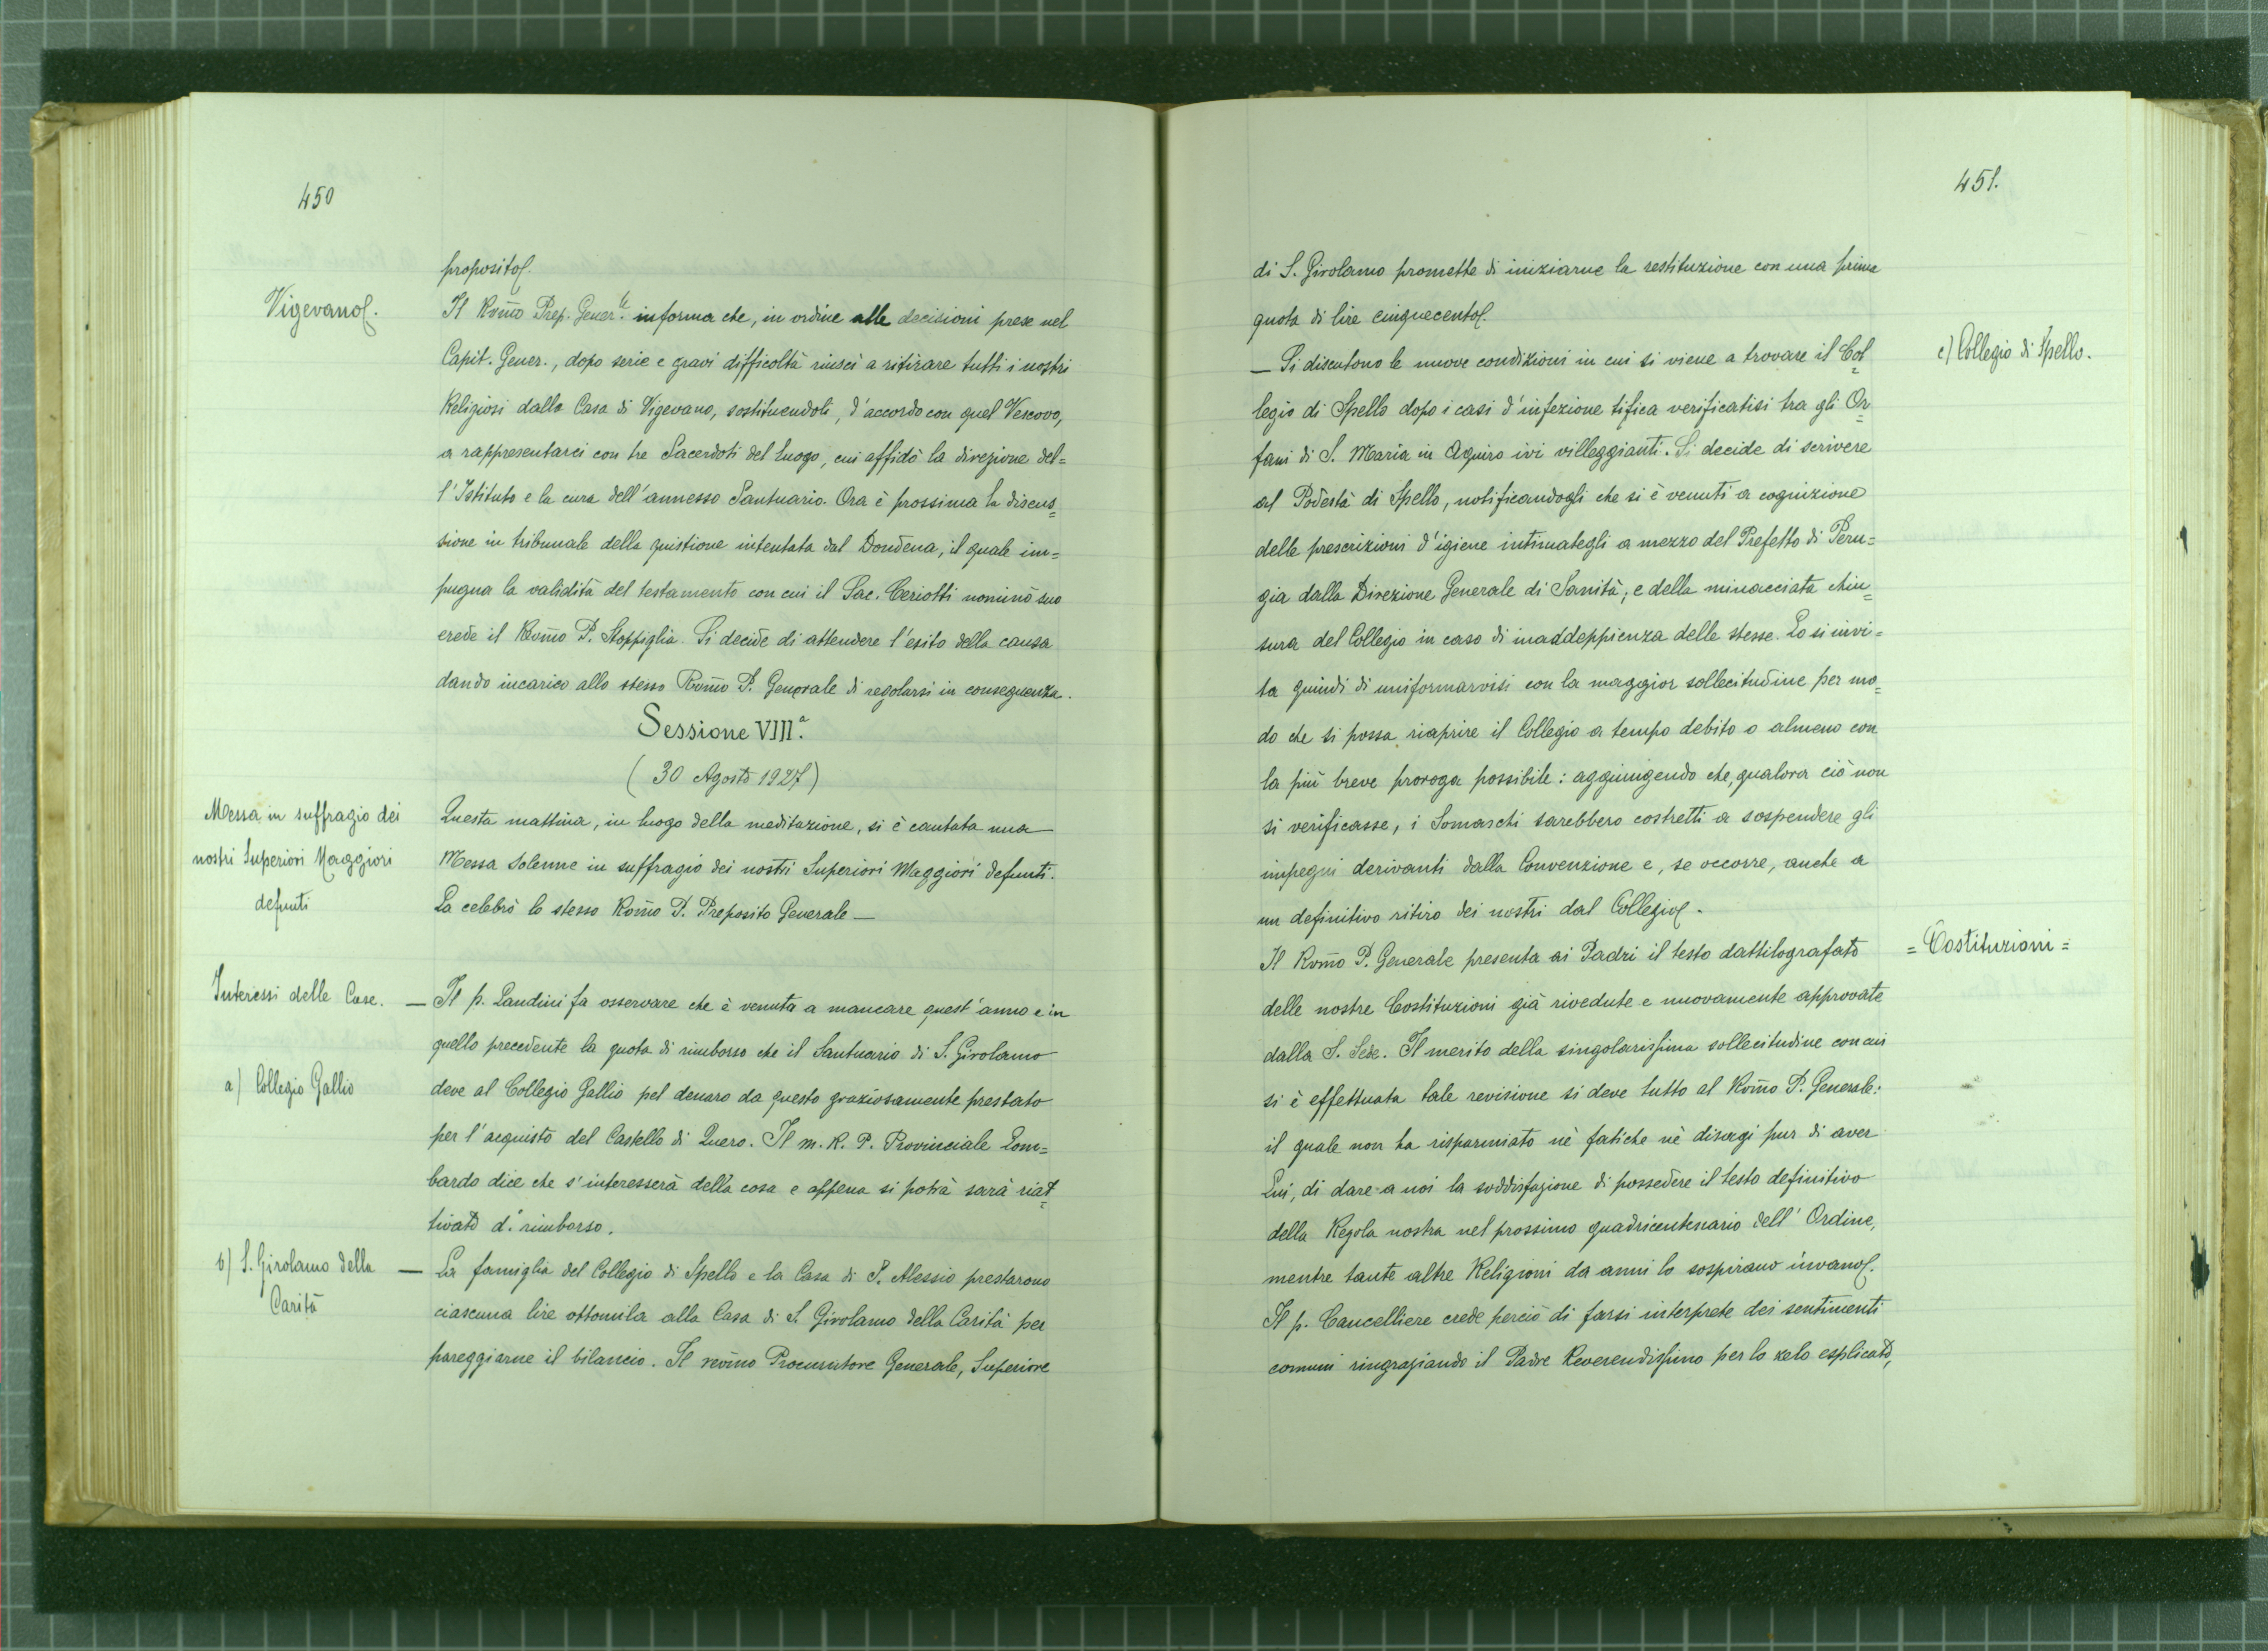 450
proposito.
Vigevano.
Il Rom̃o Prep. Gener.le informa che, in ordine alle decisioni prese nel
Capit. Gener., dopo serie e gravi difficoltà riuscì a ritirare tutti i nostri
Religiosi dalla Casa di Vigevano, sostituendoli, d'accordo con quel Vescovo,
a rappresentarci con tre Sacerdoti del luogo, cui affidò la direzione del=
l'Istituto e la cura dell'annesso Santuario. Ora è prossima la discus=
sione in tribunale della quistione intentata dal Dondena, il quale im=
pugna la validità del testamento con cui il Sac. Ceriotti nominò suo
erede il Rev̄mo P. Stoppiglia. Si decide di attendere l'esito della causa
dando incarico allo stesso Rom̃o P. Generale di regolarsi in conseguenza.
Sessione VIIIª.
(30 Agosto 1927)
Messa in suffragio dei
nostri Superiori Maggiori
defunti
Questa mattina, in luogo della meditazione, si è cantata una
Messa solenne in suffragio dei nostri Superiori Maggiori defunti.
La celebrò lo stesso Rom̃o P. Preposito Generale —
Interessi delle Case.
— Il p. Landini fa osservare che è venuta a mancare quest'anno e in
quello precedente la quota di rimborso che il Santuario di S. Girolamo
a) Collegio Gallio
deve al Collegio Gallio pel denaro da questo graziosamente prestato
per l'acquisto del Castello di Quero. Il m. R. P. Provinciale Lom=
bardo dice che s'interesserà della cosa e appena si potrà sarà riat=
tivato d.º rimborso.
b) S. Girolamo della
Carità
— La famiglia del Collegio di Spello e la Casa di S. Alessio prestarono
ciascuna lire ottomila alla Casa di S. Girolamo della Carità per
pareggiarne il bilancio. Il rev̄mo Procuratore Generale, Superiore
451.
di S. Girolamo promette di iniziarne la restituzione con una prima
quota di lire cinquecento.
c) Collegio di Spello.
— Si discutono le nuove condizioni in cui si viene a trovare il Col=
legio di Spello dopo i casi d'infezione tifica verificatisi tra gli Or=
fani di S. Maria in Aquiro ivi villeggianti. Si decide di scrivere
al Podestà di Spello, notificandogli che si è venuti a cognizione
delle prescrizioni d'igiene intimategli a mezzo del Prefetto di Peru=
gia dalla Direzione Generale di Sanità; e della minacciata chiu=
sura del Collegio in caso di inaddeppienza delle stesse. Lo si invi=
ta quindi di uniformarvisi con la maggior sollecitudine per mo=
do che si possa riaprire il Collegio a tempo debito o almeno con
la più breve proroga possibile: aggiungendo che, qualora ciò non
si verificasse, i Somaschi sarebbero costretti a sospendere gli
impegni derivanti dalla Convenzione e, se occorre, anche a
un definitivo ritiro dei nostri dal Collegio.
= Costituzioni =
Il Rom̃o P. Generale presenta ai Padri il testo dattilografato
delle nostre Costituzioni già rivedute e nuovamente approvate
dalla S. Sede. Il merito della singolarissima sollecitudine con cui
si è effettuata tale revisione si deve tutto al Rom̃o P. Generale:
il quale non ha risparmiato nè fatiche nè disagi pur di aver
Lui, di dare a noi la soddisfazione di possedere il testo definitivo
della Regola nostra nel prossimo quadricentenario dell'Ordine,
mentre tante altre Religioni da anni lo sospirano invano.
Il p. Cancelliere crede perciò di farsi interprete dei sentimenti
comuni ringraziando il Padre Reverendissimo per lo zelo esplicato,